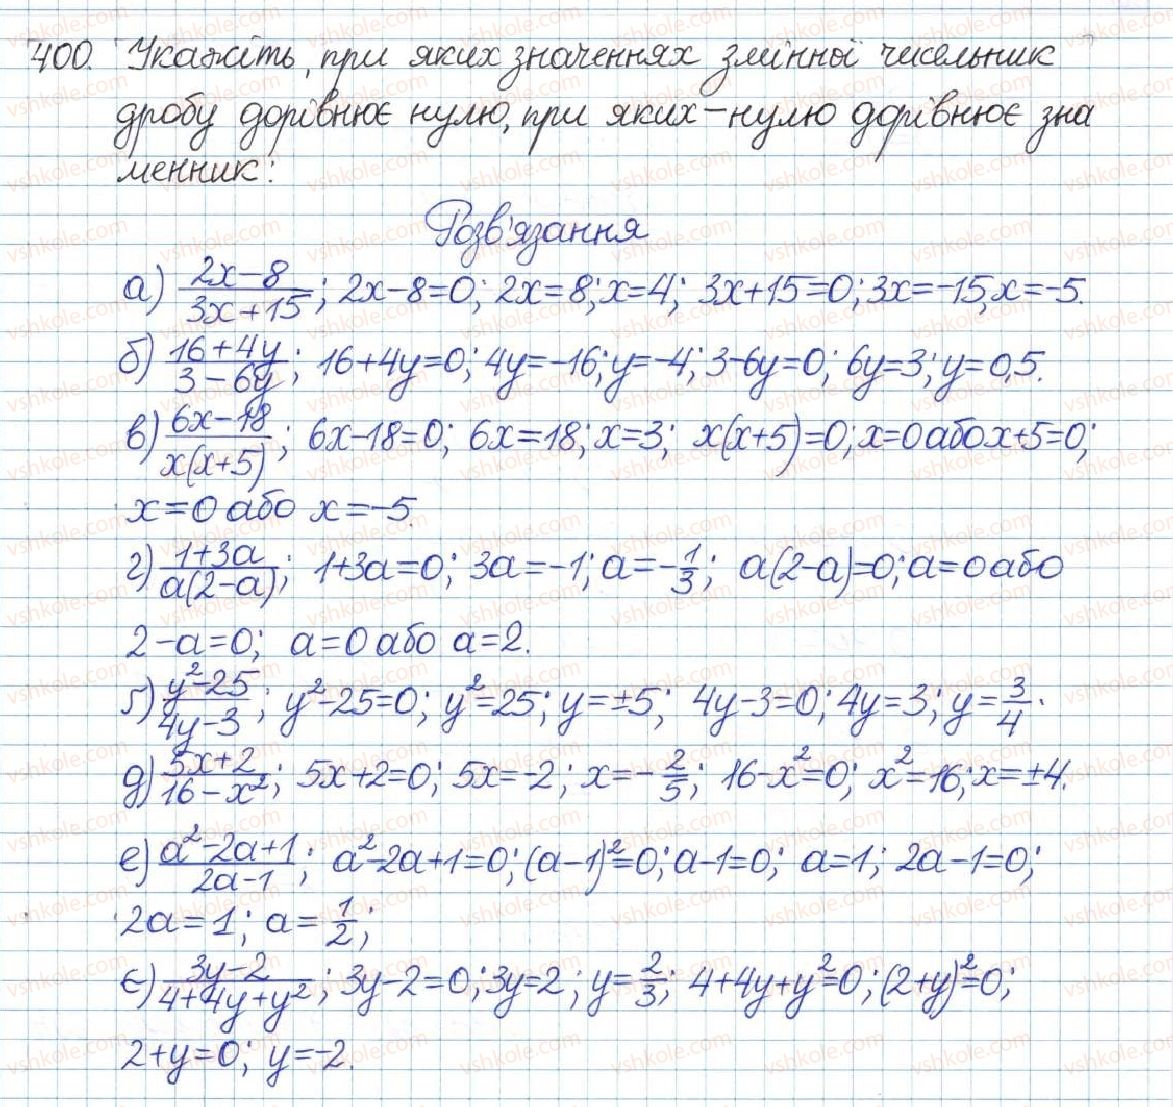 400. Укажіть, при яких значеннях змінної чисельник
дробу дорівнює нулю, при яких – нулю дорівнює зна
менник:
Розв'язання
а) (2x-8)/(3x+15); 2x-8=0; 2x=8; x=4; 3x+15=0; 3x=-15; x=-5.
б) (16+4y)/(3-6y); 16+4y=0; 4y=-16; y=-4; 3-6y=0; 6y=3; y=0,5.
в) (6x-18)/(x(x+5)); 6x-18=0; 6x=18; x=3; x(x+5)=0; x=0 або x+5=0;
x=0 або x=-5.
г) (1+3a)/(a(2-a)); 1+3a=0; 3a=-1; a=-1/3; a(2-a)=0; a=0 або
2-a=0; a=0 або a=2.
ґ) (y²-25)/(4y-3); y²-25=0; y²=25; y=±5; 4y-3=0; 4y=3; y=3/4.
д) (5x+2)/(16-x²); 5x+2=0; 5x=-2; x=-2/5; 16-x²=0; x²=16; x=±4.
е) (a²-2a+1)/(2a-1); a²-2a+1=0; (a-1)²=0; a-1=0; a=1; 2a-1=0;
2a=1; a=1/2;
є) (3y-2)/(4+4y+y²); 3y-2=0; 3y=2; y=2/3; 4+4y+y²=0; (2+y)²=0;
2+y=0; y=-2.